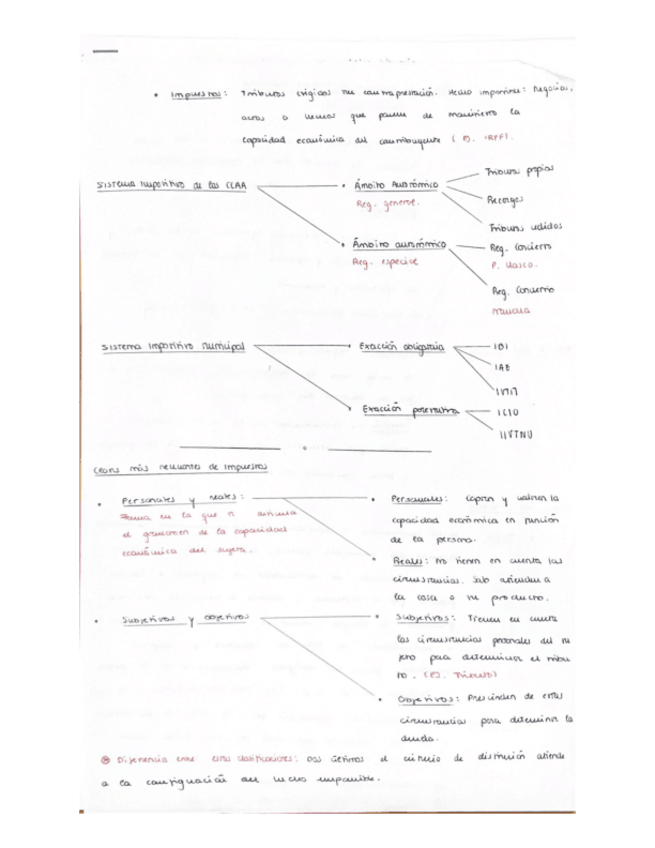 • Impuestos: Tributos exigidos sin contraprestación. Hecho imponible: Negocios,
actos o hechos que ponen de manifiesto la
capacidad económica del contribuyente (Ej. IRPF).
Sistema impositivo de las CCAA
• Ámbito Autonómico
Reg. general.
Tributos propios
Recargos
Tributos cedidos
• Ámbito autonómico
Reg. especial
Reg. Concierto
P. Vasco.
Reg. Convenio
Navarra
Sistema impositivo municipal
• Exacción obligatoria
IBI
IAE
IVTM
• Exacción potestativa
ICIO
IIVTNU
Clases más relevantes de impuestos
• Personales y reales:
Forma en la que se articula
el gravamen de la capacidad
económica del sujeto.
• Personales: Captan y valoran la
capacidad económica en función
de la persona.
• Reales: No tienen en cuenta las
circunstancias. Solo atienden a
la cosa o su producto.
• Subjetivos y objetivos
• Subjetivos: Tienen en cuenta
las circunstancias personales del su
jeto para determinar el tribu
to. (Ej.
• Objetivos: Prescinden de estas
circunstancias para determinar la
deuda.
Diferencia entre estas clasificaciones: Dos últimos el criterio de distinción atiende
a la configuración del hecho imponible.